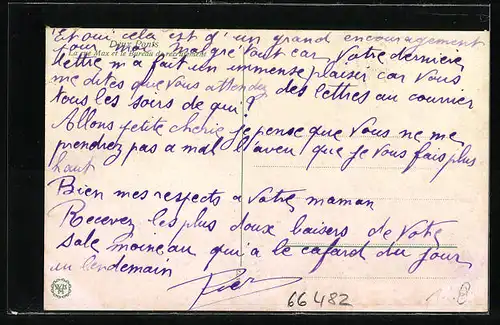 Et oui cela est d'un grand encouragement
pour moi malgré tout car votre dernière
lettre m'a fait un immense plaisir car vous
me dites que vous attendez des lettres au courrier
tous les soirs de qui?
Allons petite cherie je pense que vous ne me
prendrez pas a mal l'aveu que je vous fais plus
haut
Bien mes respects a votre maman
Recevez les plus doux baisers de votre
sale moineau qui a le cafard du jour
au lendemain
66482
La rue Max et le Bureau de recrutement